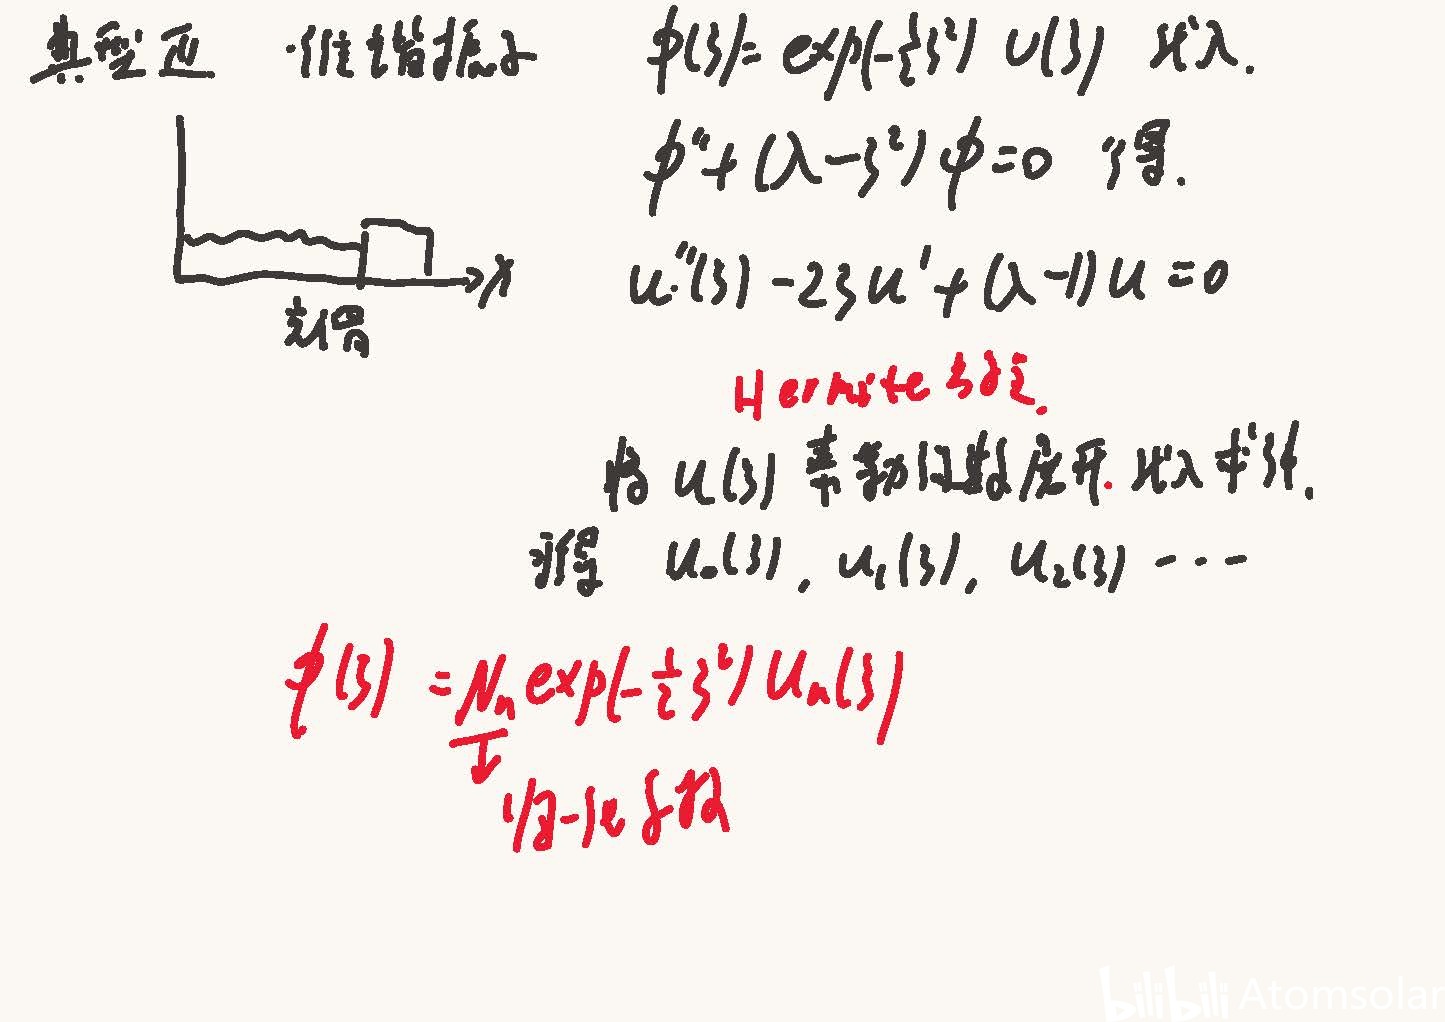 典型五 一维谐振子
φ(ξ)= exp(-½ξ²) u(ξ) 代入.
φ"+(λ-ξ²)φ=0 得.
x
u"(ξ)-2ξu'+(λ-1)u=0
Hermite 方程.
将 u(ξ) 泰勒级数展开. 代入求解.
得 u₀(ξ), u₁(ξ), u₂(ξ) ···
φ(ξ) = Nₙ exp(-½ξ²) uₙ(ξ)
归一化
bilibili Atomsolar